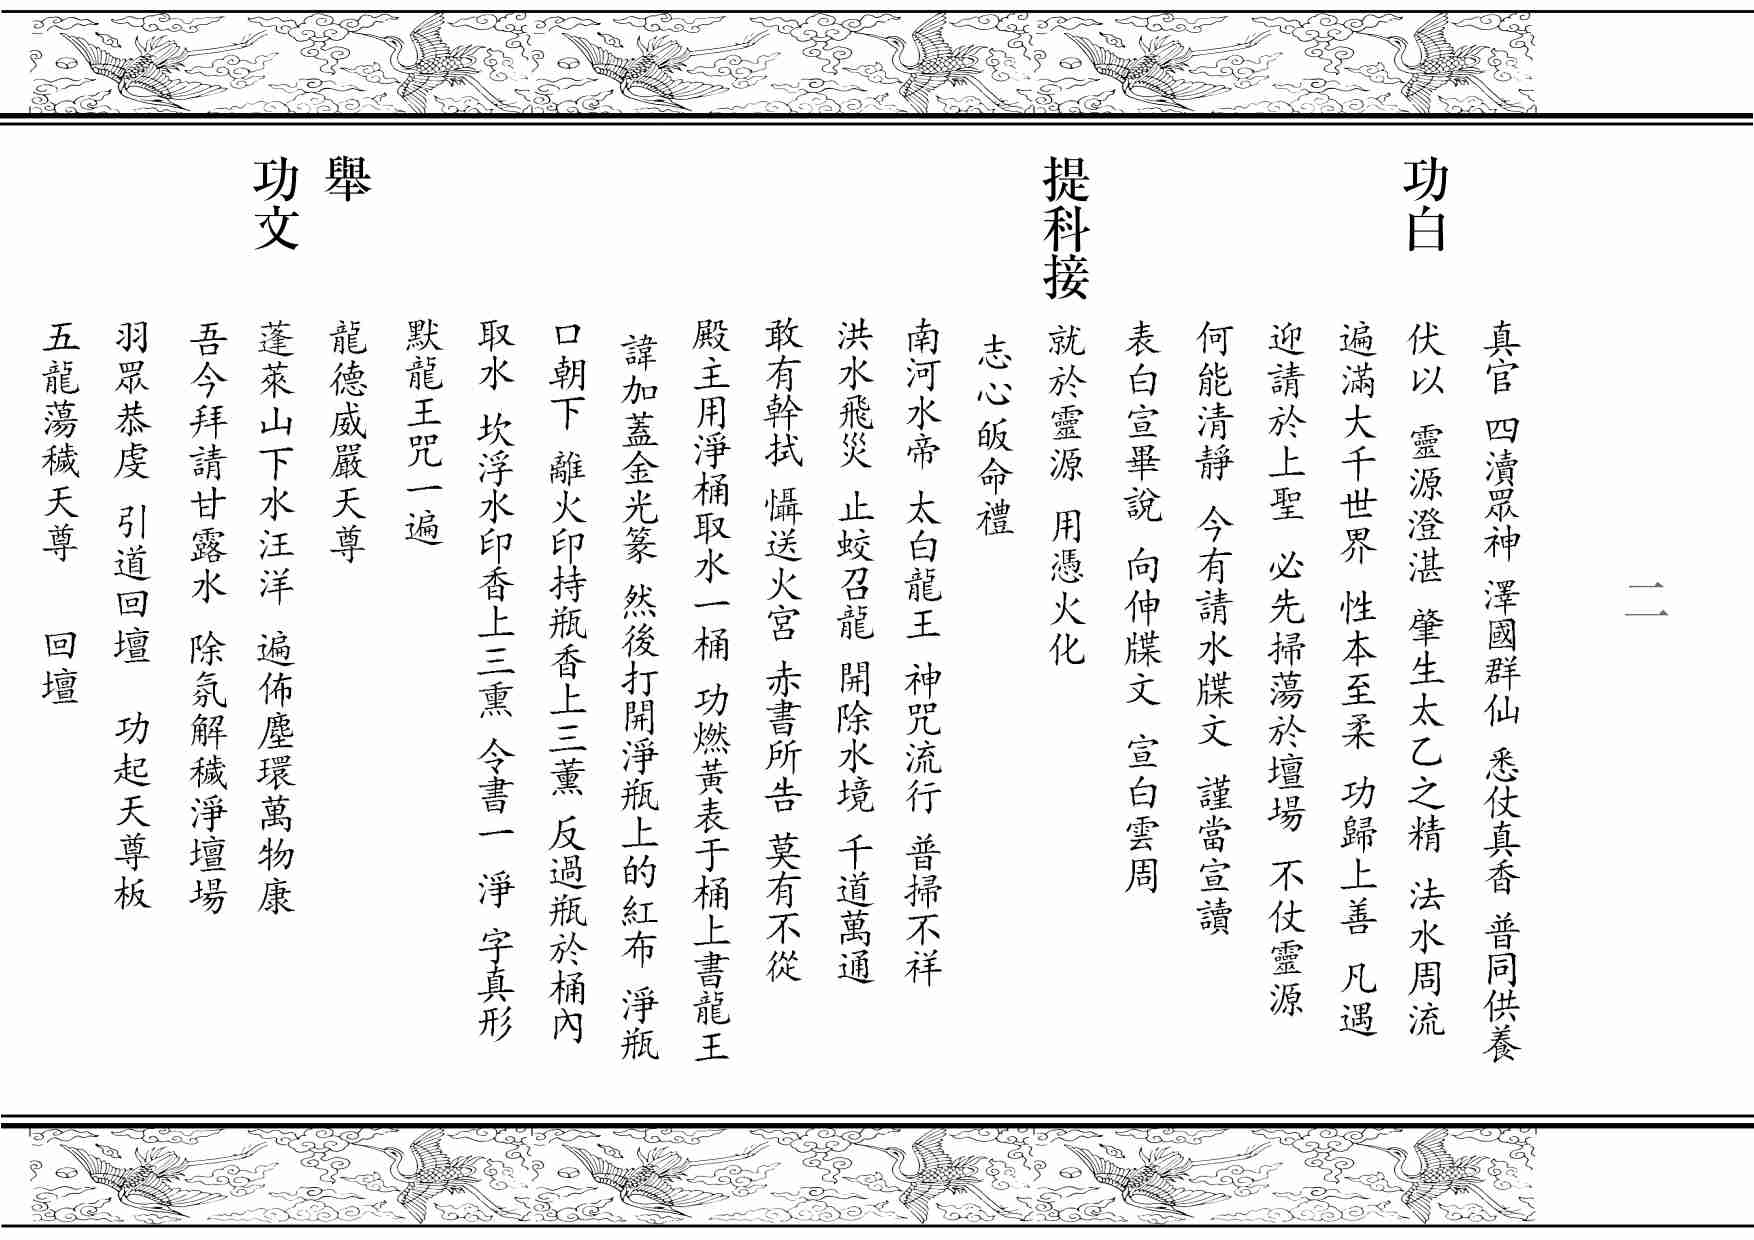 二
真官 四瀆眾神 澤國群仙 悉仗真香 普同供養
功白 伏以 靈源澄湛 肇生太乙之精 法水周流
遍滿大千世界 性本至柔 功歸上善 凡遇
迎請於上聖 必先掃蕩於壇場 不仗靈源
何能清靜 今有請水牒文 謹當宣讀
表白宣畢說 向伸牒文 宣白雲周
提科接 就於靈源 用憑火化
志心皈命禮
南河水帝 太白龍王 神咒流行 普掃不祥
洪水飛災 止蛟召龍 開除水境 千道萬通
敢有幹拭 懾送火宮 赤書所告 莫有不從
殿主用淨桶取水一桶 功燃黃表于桶上書龍王
諱加蓋金光篆 然後打開淨瓶上的紅布 淨瓶
口朝下 離火印持瓶香上三薰 反過瓶於桶內
取水 坎浮水印香上三熏 令書一 淨 字真形
默龍王咒一遍
舉 龍德威嚴天尊
功文 蓬萊山下水汪洋 遍佈塵環萬物康
吾今拜請甘露水 除氛解穢淨壇場
羽眾恭虔 引道回壇 功起天尊板
五龍蕩穢天尊 回壇